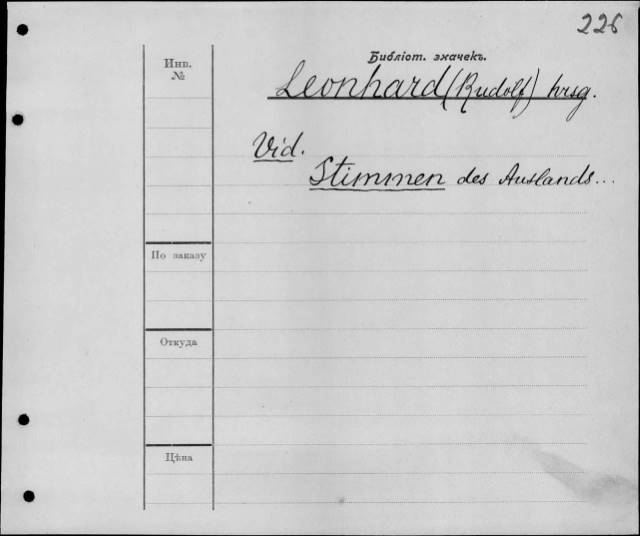 226
Библіот. значекъ.
Инв.
№
Leonhard (Rudolf) hrsg.
Vid.
Stimmen des Auslands...
По заказу
Откуда
Цѣна